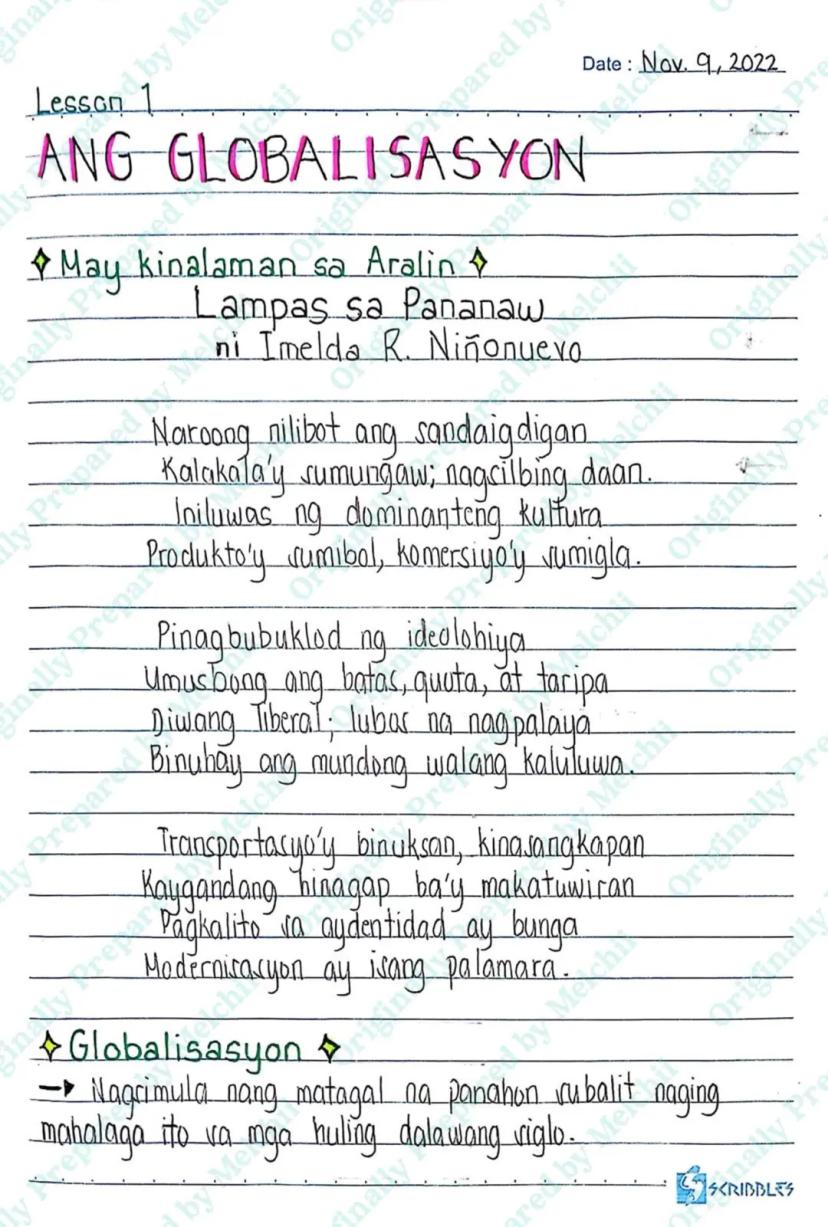 Date : Nov. 9, 2022
Lesson 1
ANG GLOBALISASYON
May kinalaman sa Aralin
Lampas sa Pananaw
ni Imelda R. Niñonuevo
Naroong nilibot ang sandaigdigan
Kalakala'y sumungaw; nagsilbing daan.
Iniluwas ng dominanteng kultura
Produkto'y sumibol, komersiyo'y sumigla.
Pinagbubuklod ng ideolohiya
Umusbong ang batas, quota, at taripa
Diwang liberal; lubos na nagpalaya
Binuhay ang mundong walang kaluluwa.
Transportasyo'y binuksan, kinasangkapan
Kaygandang hinagap ba'y makatuwiran
Pagkalito sa aydentidad ay bunga
Modernisasyon ay isang palamara.
Globalisasyon
→ Nagsimula nang matagal na panahon subalit naging
mahalaga ito sa mga huling dalawang siglo.
SCRIBBLES
Originally Prepared by Melchii